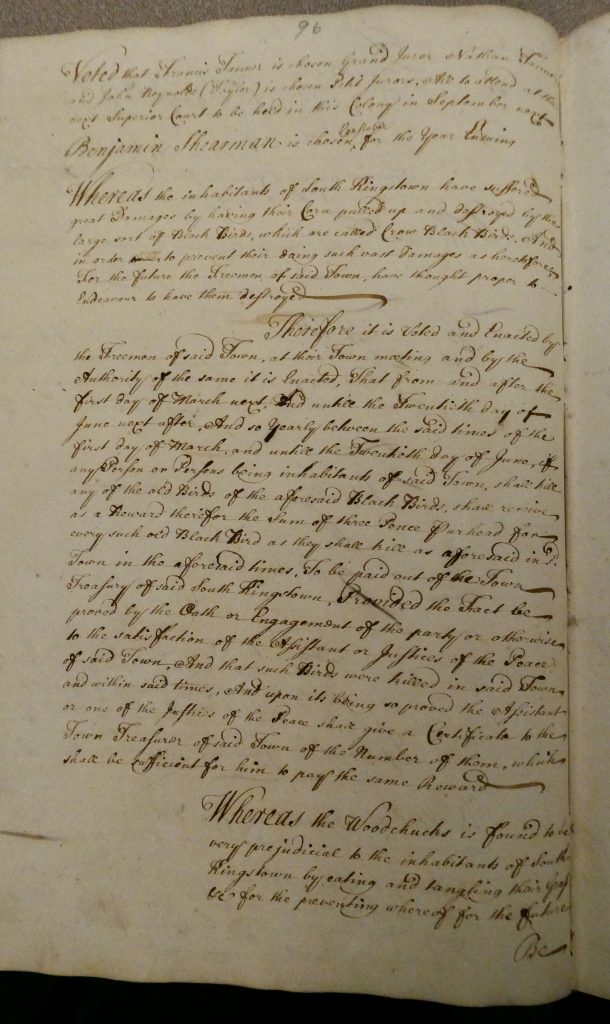 96
Voted that Francis Tanner is chosen Grand Juror Nathan Tanner
and John Reynolds (Taylor) is chosen Petit Jurors, Are to attend at the
next Superior Court to be held in this Colony in September next
Constable
Benjamin Shearman is chosen for the Year Ensuing
Whereas the inhabitants of South Kingstown have suffered
great Damages by having their Corn pulled up and destroyed by the
large sort of Black Birds, which are called Crow Black Birds, And
in order to prevent their doing such vast damages as heretofore
For the future the Freemen of said Town, have thought proper to
Endeavour to have them destroyed
Therefore it is Voted and Enacted by
the Freemen of said Town, at their Town meeting and by the
Authority of the same it is Enacted, That from and after the
first day of March next, And untill the Twentieth day of
June next after, And so Yearly between the said times of the
first day of March, and untill the Twentieth Day of June, if
any Person or Persons being inhabitants of said Town, shall kill
any of the old Birds of the aforesaid Black Birds, shall receive
as a Reward therefor the Sum of three Pence Purhead for
every such old Black Bird as they shall kill as aforesaid in sd.
Town in the aforesaid times, To be paid out of the Town
Treasury of said South Kingstown, Provided the Fact be
proved by the Oath or Engagement of the party or otherwise
to the satisfaction of the Assistant or Justices of the Peace
of said Town, And that such Birds were killed in said Town
and within said times, And upon its being so proved the Assistant
or one of the Justices of the Peace shall give a Certificate to the
Town Treasurer of said Town of the Number of them, which
shall be sufficient for him to pay the same Reward
Whereas the Woodchuchs is found to be
very prejudicial to the inhabitants of South
Kingstown by eating and tangling their Grass
&c for the preventing whereof for the future
Be